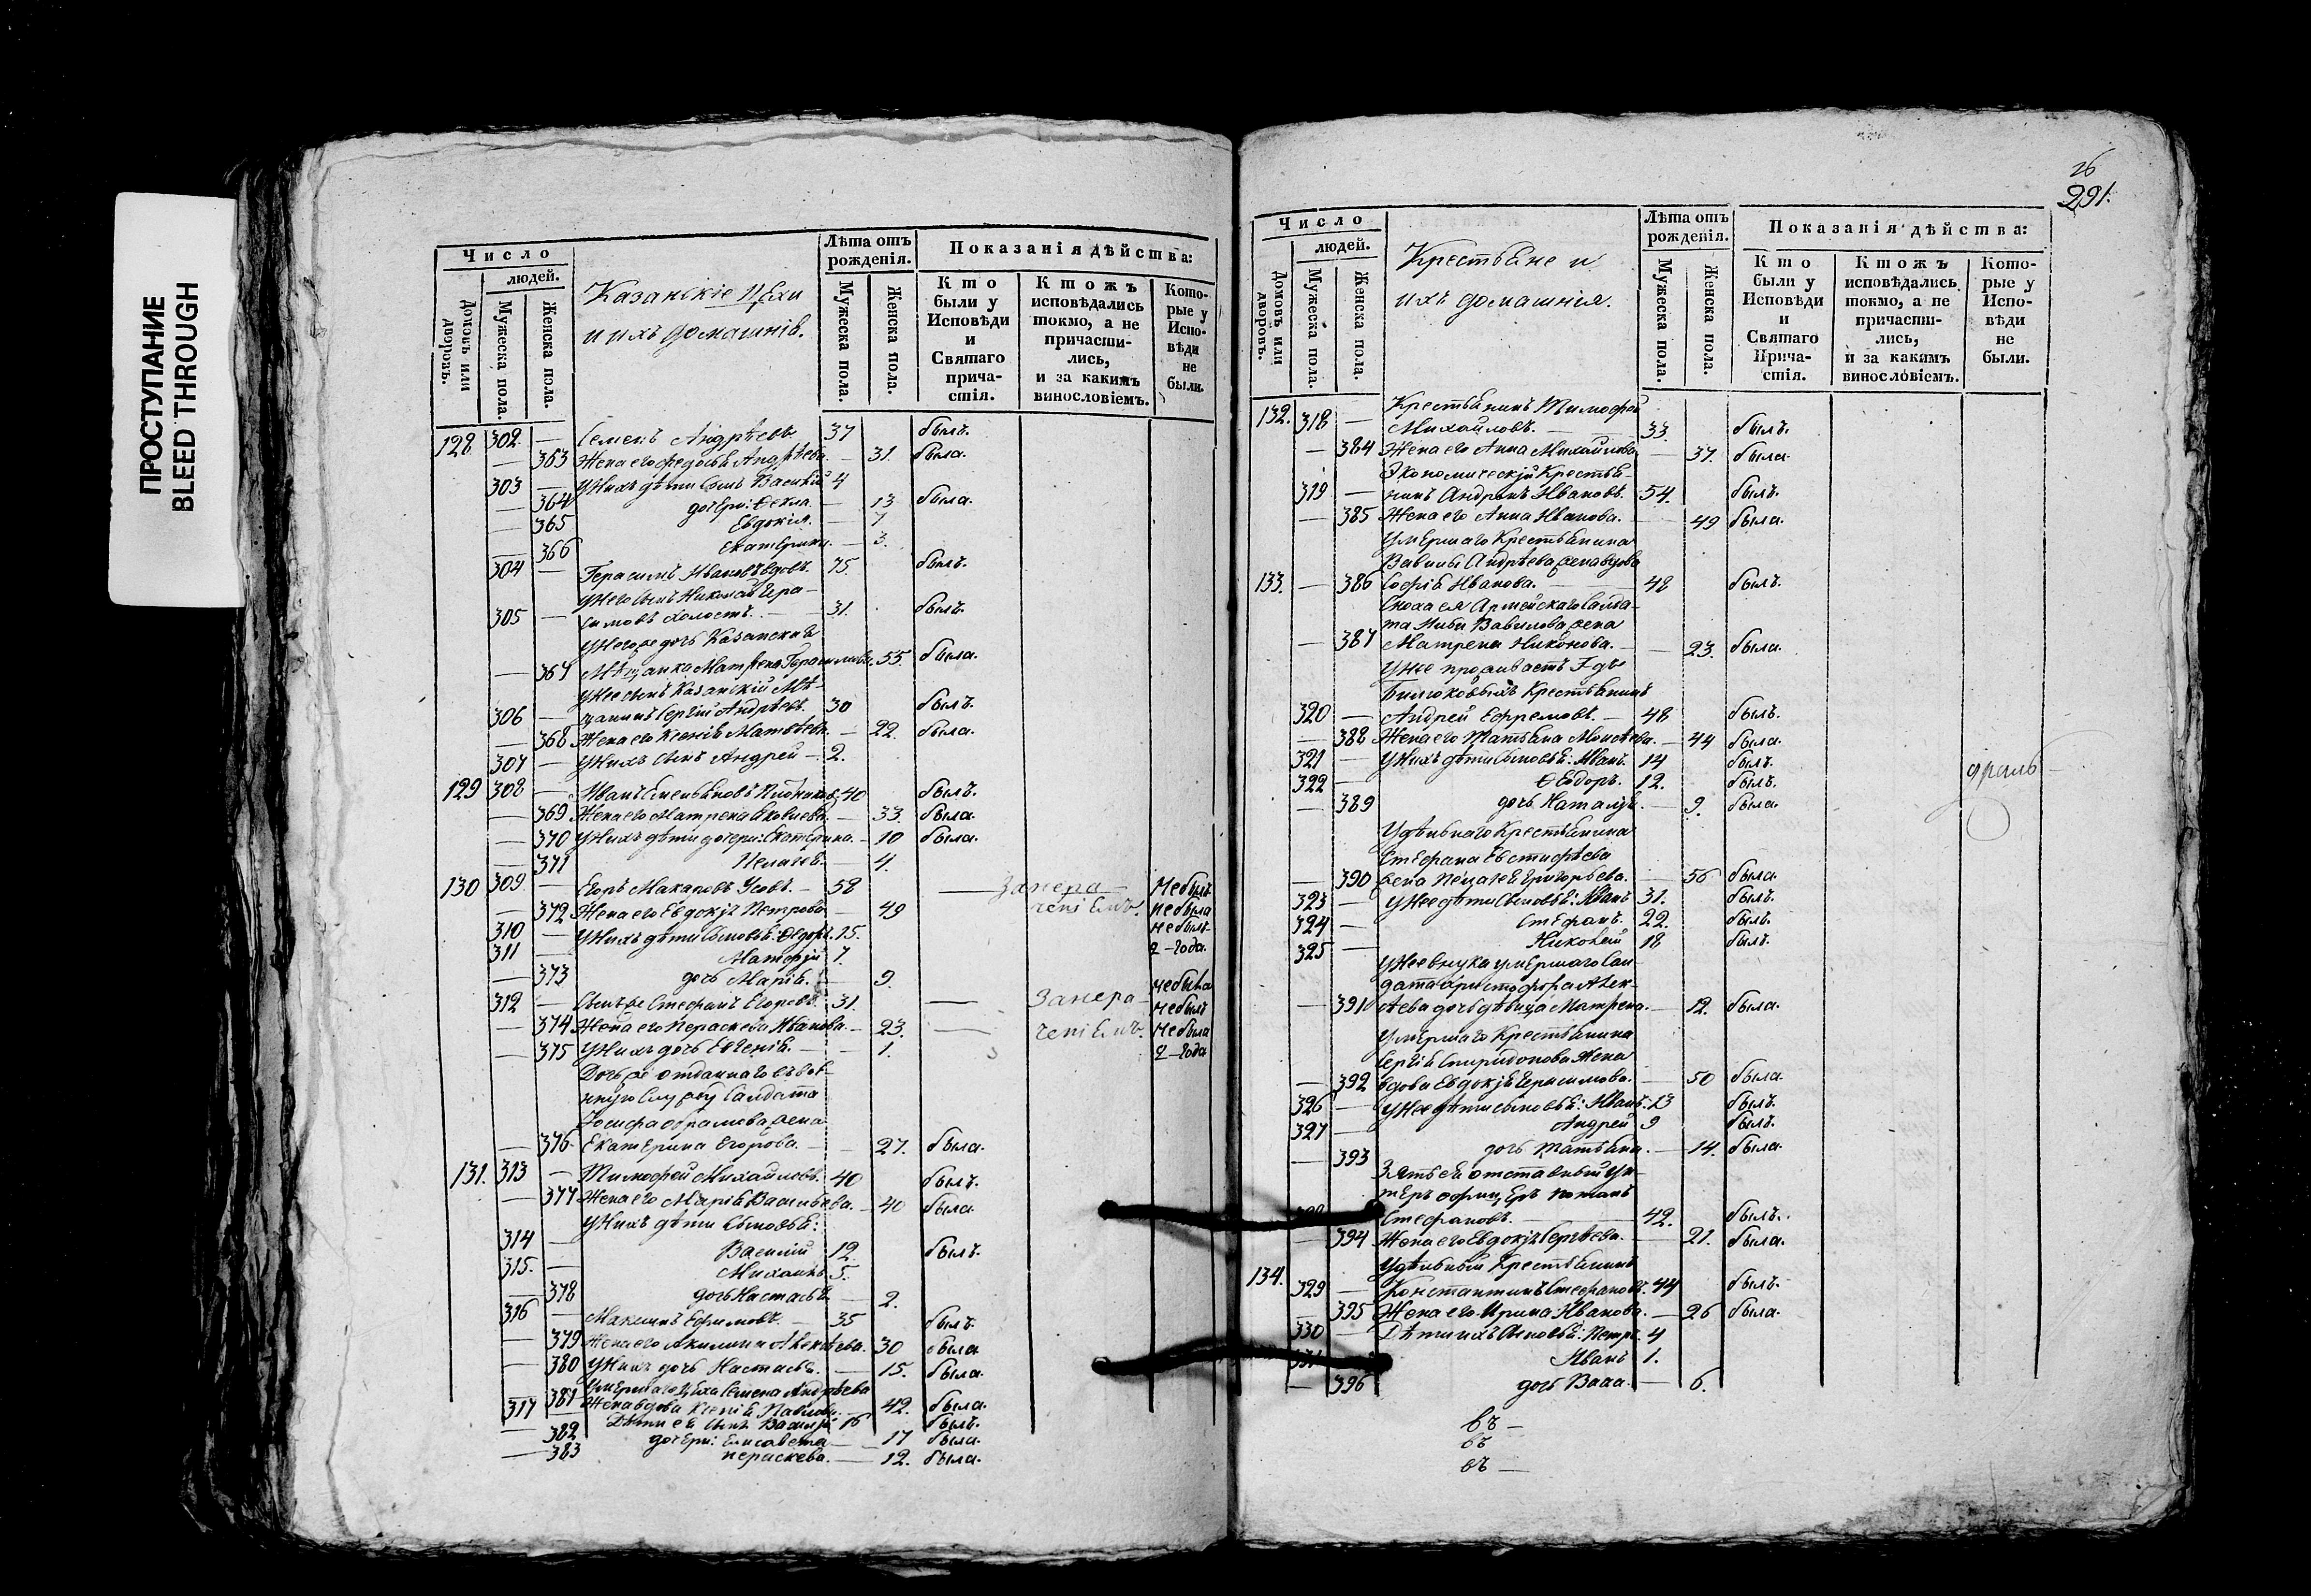 ПРОСТУПАНИЕ
BLEED THROUGH
Число
людей.
Домовъ или дворовъ.
Мужеска пола.
Женска пола.
Казанскіе Цехи
и ихъ домашніе.
Лѣта отъ рожденія.
Мужеска пола.
Женска пола.
Показанія дѣйства:
Кто были у Исповѣди и Святаго причастія.
Ктожъ исповѣдались токмо, а не причастились, и за какимъ винословіемъ.
Которые у Исповѣди не были.
128 302 — Семенъ Андрѣевъ 37 былъ.
— 363 Жена его Федосья Андрѣева. — 31. была.
303 — У нихъ дѣти Сынъ Василій 4
— 364 дочери: Фекла — 13 была.
— 365 Евдокія. — 7
— 366 Екатерина. — 3.
304 — Герасимъ Ивановъ вдовъ 75. былъ.
У него сынъ Николай Гера-
305 — симовъ холостъ. 31. былъ.
У него же дочь Казанская
— 367 Мѣщанка Матрена Герасимова. 55. была.
У нее сынъ Казанскій Мѣ-
306 — щанинъ Сергій Андрѣевъ. 30 былъ.
— 368 Жена его Ксенія Матвѣева. — 22. была.
307 — У нихъ сынъ Андрей — 2.
129 308 — Иванъ Емельяновъ 40 былъ.
— 369 Жена его Матрена Яковлева. — 33. была.
— 370 У нихъ дѣти дочери: Екатерина. — 10 была.
— 371 Пелагея. — 4.
130 309 — Егоръ Макаровъ Усовъ. — 58 — Занера- Небылъ
— 372 Жена его Евдокія Петрова — 49 ченіемъ. небыла
310 — У нихъ дѣти Сыновья: Федоръ. 15. небылъ
311 — Матвей 7. 2-года.
— 373 дочь Марія. — 9. небыла
312 — Сынъ же Стефанъ Егоровъ. 31. — Занера- небылъ
— 374 Жена его Пераскева Иванова. — 23. — ченіемъ. небыла
— 375 У нихъ дочь Евгенія. — 1. 2-года
Дочь же отданнаго въ вое-
нную службу Салдата
Іосифа Абрамова жена
— 376 Екатерина Егорова. — 27. была.
131. 313 — Тимофей Михайловъ. 40 былъ.
— 377 Жена его Марія Васильева. — 40 была.
У нихъ дѣти Сыновья:
314 — Василій 12. былъ.
315. — Михаилъ 5.
— 378 дочь Настасья — 2.
316 — Максимъ Ефимовъ. — 35 былъ.
— 379 Жена его Акилина Алексѣева. 30 была
— 380 У нихъ дочь Настасья. — 15. была.
Умершаго Цеха Семена Андрѣева
381 Жена вдова Ксенія Павлова. — 42. была.
317 — Дѣти ея сынъ Василій 16 былъ.
— 382 дочери: Елисавета — 17 была.
— 383 Пераскева. — 12. была.
26
291.
Число
людей.
Домовъ или дворовъ.
Мужеска пола.
Женска пола.
Крестьяне и
ихъ домашнія.
Лѣта отъ рожденія.
Мужеска пола.
Женска пола.
Показанія дѣйства:
Кто были у Исповѣди и Святаго Причастія.
Ктожъ исповѣдались токмо, а не причастились, и за какимъ винословіемъ.
Которые у Исповѣди не были.
Крестьянинъ Тимофей
132. 318 — Михайловъ. — 33. былъ.
— 384 Жена его Анна Михайлова — 37. была.
Экономическій Крестья-
319 — нинъ Андреянъ Ивановъ. 54. былъ.
— 385 Жена его Анна Иванова. — 49 была.
Умершаго Крестьянина
Вавилы Андрѣева жена вдова
133. — 386 Софія Иванова. — 48 былъ.
Сноха ея Армейскаго Салда-
та Вавилова жена
— 387 Матрена Никонова. — 23. была.
У нее проживаетъ
Крестьянинъ
320 — Андрей Ефремовъ. — 48 былъ.
— 388 Жена его Татьяна Моисѣева. — 44 была.
321 — У нихъ дѣти Сыновья: Иванъ 14 былъ.
322 — Ѳеодоръ. 12. былъ.
— 389 дочь Наталія. — 9. была.
Удѣльнаго Крестьянина
Стефана Евстифѣева
— 390 жена Пелагея Григорьева. — 56 была.
323 — У нее дѣти Сыновья: Иванъ 31. былъ.
324 — Стефанъ. 22. былъ.
325 — Николай 18 былъ.
У нее внука умершаго Сал-
дата Христофора Алек-
— 391 сѣева дочь дѣвица Матрена. — 12. была.
Умершаго Крестьянина
Сергія Спиридонова жена
— 392 вдова Евдокія Герасимова. — 50 была.
326 — У нее дѣти сыновья: Иванъ. 13 былъ.
327 — Андрей 9 былъ.
— 393 дочь Татьяна. — 14. была.
Зять ея отставный Ун-
теръ офицеръ Потапъ
Стефановъ. — 42. былъ.
— 394 Жена его Евдокія Сергѣева. — 21. была.
Удѣльный Крестьянинъ
134. 329 — Константинъ Стефановъ. 44 былъ.
— 395 Жена его Ирина Иванова. — 26 была.
330 — Дѣти ихъ Сыновья: Петръ. 4
Иванъ 1.
— 396 дочь Васса. — 6.
въ —
въ
въ —